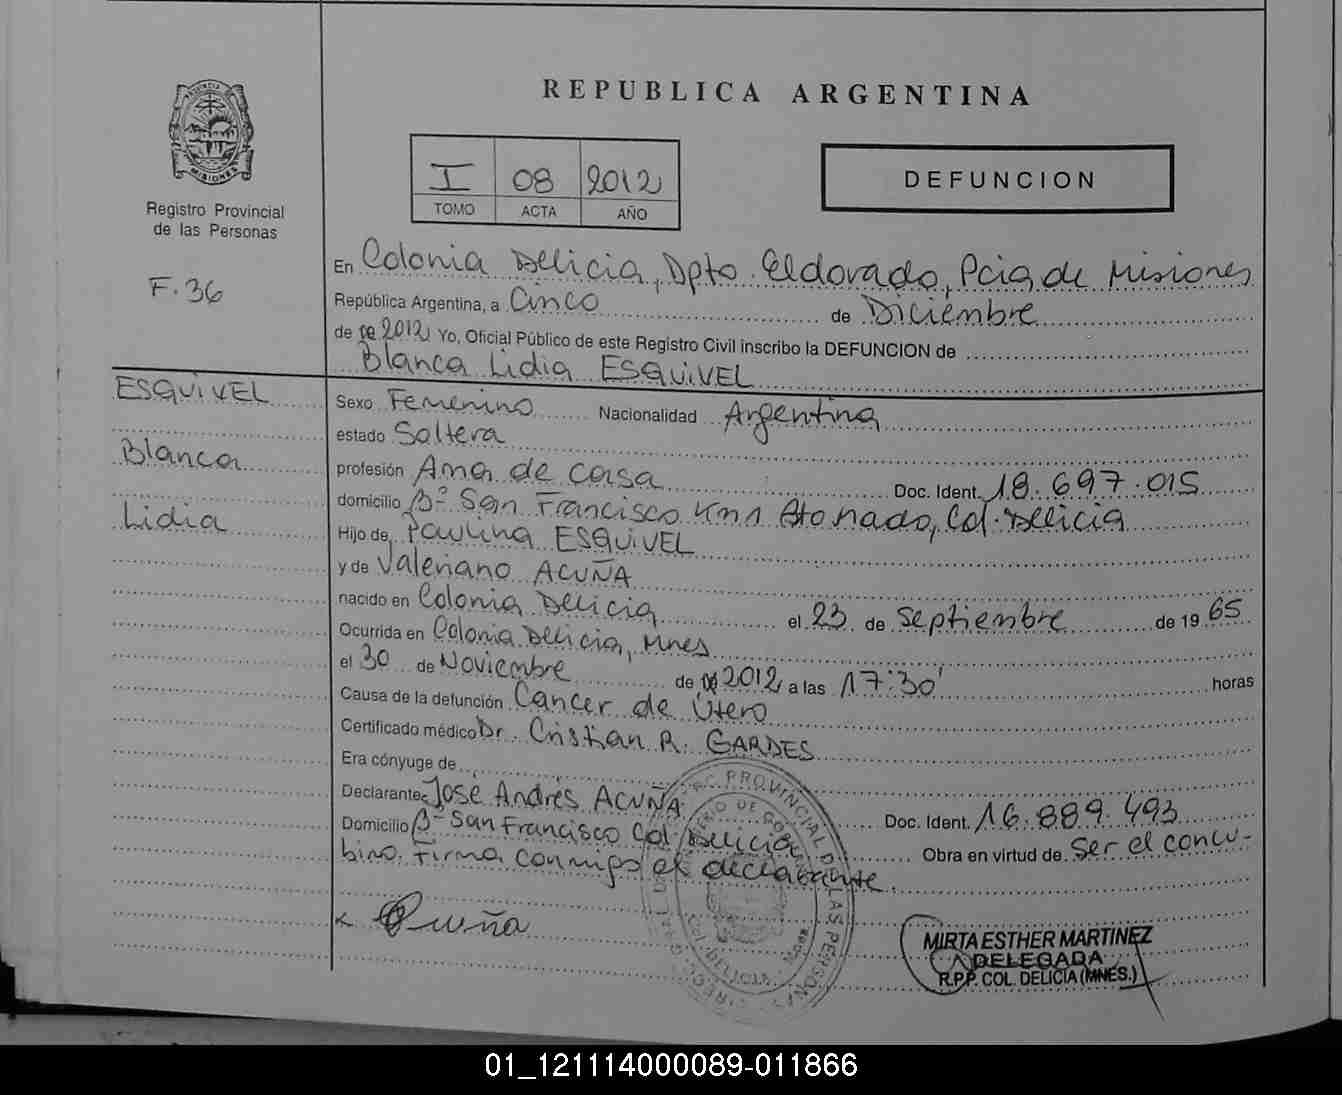 REPUBLICA ARGENTINA
PROVINCIA DE
MISIONES
Registro Provincial
de las Personas
F. 36
I 08 2012
TOMO ACTA AÑO
DEFUNCION
En Colonia Delicia, Dpto. Eldorado, Pcia de Misiones
República Argentina, a Cinco de Diciembre
de 2012 Yo, Oficial Público de este Registro Civil inscribo la DEFUNCION de
Blanca Lidia ESQUIVEL
ESQUIVEL
Blanca
Lidia
Sexo Femenino Nacionalidad Argentina
estado Soltera
profesión Ama de casa Doc. Ident. 18.697.015
domicilio Bº San Francisco Km1 Atonado, Col. Delicia
Hijo de Paulina ESQUIVEL
y de Valeriano ACUÑA
nacido en Colonia Delicia el 23 de Septiembre de 1965
Ocurrida en Colonia Delicia, Mnes
el 30 de Noviembre de 2012 a las 17:30' horas
Causa de la defunción Cancer de Utero
Certificado médico Dr. Cristian R. GARDES
Era cónyuge de
Declarante: José Andrés ACUÑA Doc. Ident. 16.889.493
Domicilio Bº San Francisco Col. Delicia Obra en virtud de Ser el concu-
bino. Firma conmigo el declarante.
Acuña
PROVINCIAL DE LAS PERSONAS
COL. DELICIA - Mnes
MIRTA ESTHER MARTINEZ
DELEGADA
R.P.P. COL. DELICIA (MNES.)
01_121114000089-011866